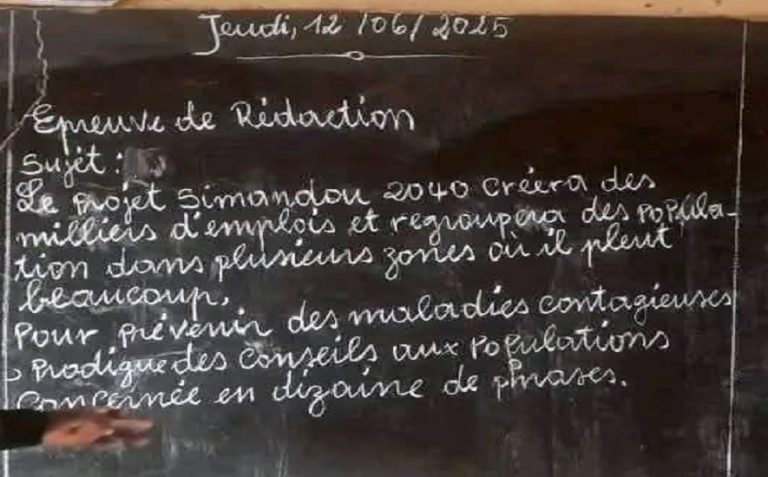 Jeudi, 12/06/2025
Epreuve de Rédaction
Sujet :
Le projet Simandou 2040 créera des
milliers d'emplois et regroupera des popula-
tion dans plusieurs zones où il pleut
beaucoup.
Pour prévenir des maladies contagieuses
, prodigue des conseils aux populations
concernée en dizaine de phrases.